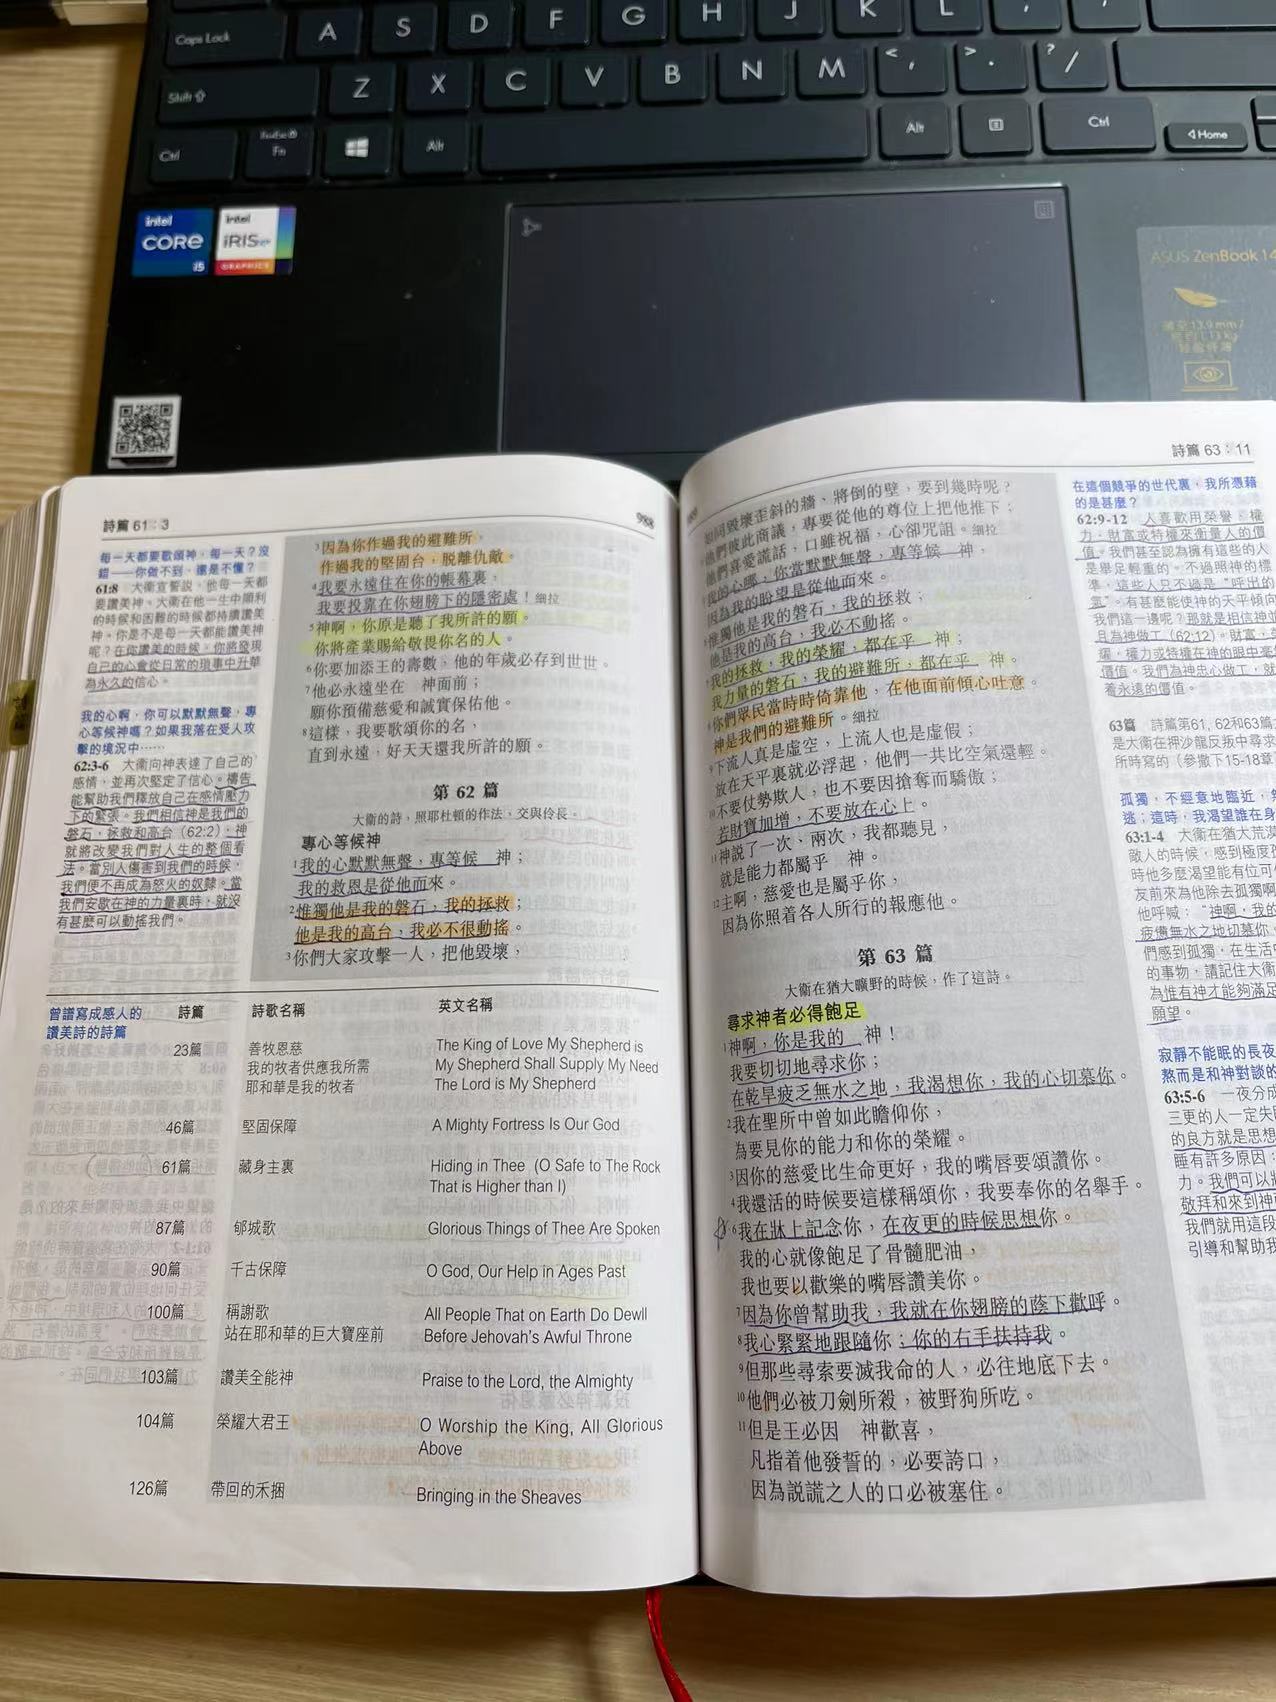 Caps Lock
A S D F G H J K L
Shift
Z X C V B N M < , > . ? /
Ctrl
Fn
Alt
Alt
Ctrl
Home
intel
CORE
i5
intel
iRIS
GRAPHICS
ASUS ZenBook 14
詩篇 61：3
988
每一天都要歌頌神，每一天？沒
錯——你做不到，還是不懂？
61:8 大衛宣誓說，他每一天都
要讚美神。大衛在他一生中順利
的時候和困難的時候都持續讚美
神。你是不是每一天都能讚美神
呢？在你讚美的時候，你將發現
自己的心會從日常的瑣事中升華
為永久的信心。
我的心啊，你可以默默無聲，專
心等候神嗎？如果我落在受人攻
擊的境況中……
62:3-6 大衛向神表達了自己的
感情，並再次堅定了信心。禱告
能幫助我們釋放自己在感情壓力
下的緊張。我們相信神是我們的
磐石，拯救和高台（62:2），神
就將改變我們對人生的整個看
法。當別人傷害到我們的時候，
我們便不再成為怒火的奴隸。當
我們安歇在神的力量裏時，就沒
有甚麼可以動搖我們。
3因為你作過我的避難所，
作過我的堅固台，脱離仇敵。
4我要永遠住在你的帳幕裏，
我要投靠在你翅膀下的隱密處！細拉
5神啊，你原是聽了我所許的願。
你將產業賜給敬畏你名的人。
6你要加添王的壽數，他的年歲必存到世世。
7他必永遠坐在　神面前；
願你預備慈愛和誠實保佑他。
8這樣，我要歌頌你的名，
直到永遠，好天天還我所許的願。
第 62 篇
大衛的詩，照耶杜頓的作法，交與伶長。
專心等候神
1我的心默默無聲，專等候　神；
我的救恩是從他而來。
2惟獨他是我的磐石，我的拯救；
他是我的高台，我必不很動搖。
3你們大家攻擊一人，把他毀壞，
曾譜寫成感人的
讚美詩的詩篇
詩篇 詩歌名稱 英文名稱
23篇 善牧恩慈 The King of Love My Shepherd is
我的牧者供應我所需 My Shepherd Shall Supply My Need
耶和華是我的牧者 The Lord is My Shepherd
46篇 堅固保障 A Mighty Fortress Is Our God
61篇 藏身主裏 Hiding in Thee (O Safe to The Rock
That is Higher than I)
87篇 郇城歌 Glorious Things of Thee Are Spoken
90篇 千古保障 O God, Our Help in Ages Past
100篇 稱謝歌 All People That on Earth Do Dewll
站在耶和華的巨大寶座前 Before Jehovah's Awful Throne
103篇 讚美全能神 Praise to the Lord, the Almighty
104篇 榮耀大君王 O Worship the King, All Glorious
Above
126篇 帶回的禾捆 Bringing in the Sheaves
詩篇 63：11
如同毀壞歪斜的牆、將倒的壁，要到幾時呢？
他們彼此商議，專要從他的尊位上把他推下；
他們喜愛謊話，口雖祝福，心卻咒詛。細拉
我的心哪，你當默默無聲，專等候　神，
因為我的盼望是從他而來。
惟獨他是我的磐石，我的拯救；
他是我的高台，我必不動搖。
我的拯救，我的榮耀，都在乎　神；
我力量的磐石，我的避難所，都在乎　神。
你們眾民當時時倚靠他，在他面前傾心吐意。
神是我們的避難所。細拉
9下流人真是虛空，上流人也是虛假；
放在天平裏就必浮起，他們一共比空氣還輕。
10不要仗勢欺人，也不要因搶奪而驕傲；
若財寶加增，不要放在心上。
11神説了一次、兩次，我都聽見，
就是能力都屬乎　神。
12主啊，慈愛也是屬乎你，
因為你照着各人所行的報應他。
第 63 篇
大衛在猶大曠野的時候，作了這詩。
尋求神者必得飽足
1神啊，你是我的　神！
我要切切地尋求你；
在乾旱疲乏無水之地，我渴想你，我的心切慕你。
2我在聖所中曾如此瞻仰你，
為要見你的能力和你的榮耀。
3因你的慈愛比生命更好，我的嘴唇要頌讚你。
4我還活的時候要這樣稱頌你，我要奉你的名舉手。
6我在牀上記念你，在夜更的時候思想你。
我的心就像飽足了骨髓肥油，
我也要以歡樂的嘴唇讚美你。
7因為你曾幫助我，我就在你翅膀的蔭下歡呼。
8我心緊緊地跟隨你；你的右手扶持我。
9但那些尋索要滅我命的人，必往地底下去。
10他們必被刀劍所殺，被野狗所吃。
11但是王必因　神歡喜，
凡指着他發誓的，必要誇口，
因為説謊之人的口必被塞住。
在這個競爭的世代裏，我所憑藉
的是甚麼？
62:9-12 人喜歡用榮譽，權
力，財富或特權來衡量人的價
值。我們甚至認為擁有這些的人
是舉足輕重的。不過照神的標
準，這些人只不過是"呼出的
氣"。有甚麼能使神的天平傾向
我們這一邊呢？那就是相信神並
且為神做工（62:12）。財富，榮
耀，權力或特權在神的眼中毫無
價值。我們為神忠心做工，就
着永遠的價值。
63篇 詩篇第61, 62和63篇
是大衛在押沙龍反叛中尋求
所時寫的（參撒下15-18章
孤獨，不經意地臨近，
逃；這時，我渴望誰在身
63:1-4 大衛在猶大荒漠
敵人的時候，感到極度孤
時他多麼渴望能有位可
友前來為他除去孤獨
他呼喊："神啊，我的
疲憊無水之地切慕你，
們感到孤獨，在生活
的事物，請記住大衛
為惟有神才能夠滿足
願望。
寂靜不能眠的長夜
熬而是和神對談的
63:5-6 一夜分成
三更的人一定失眠
的良方就是思想
睡有許多原因：
力。我們可以將
敬拜和來到神
我們就用這段
引導和幫助我